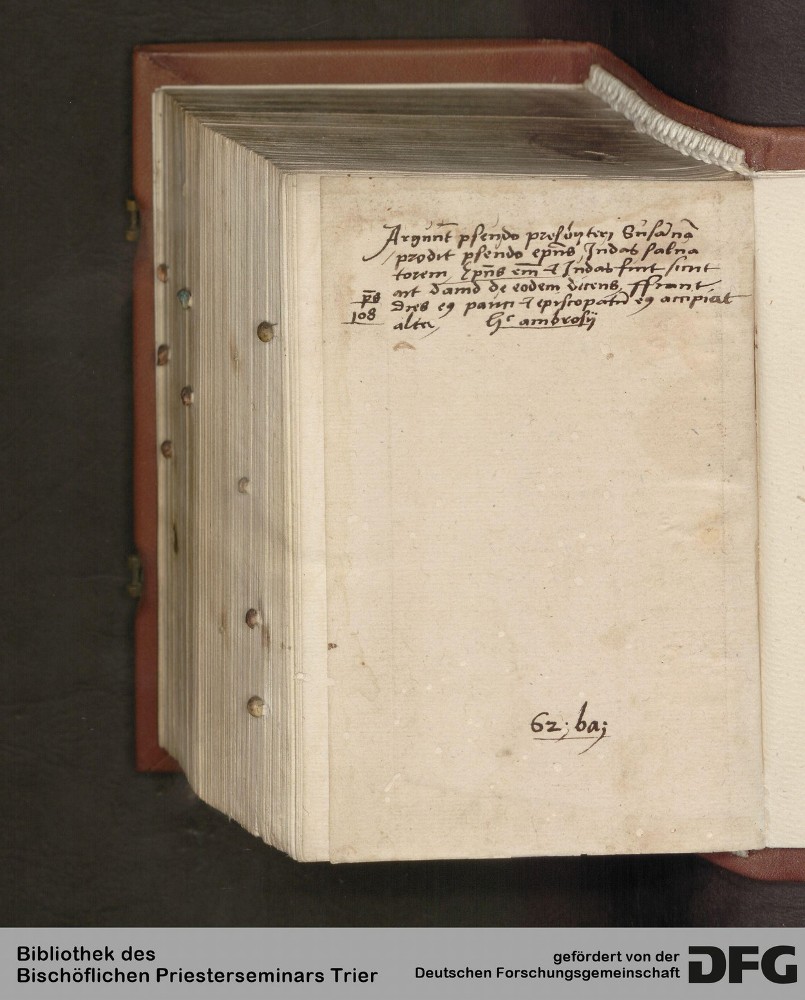 Arguūt pseudo presbyteri Susānā
prodit pseudo ep̄us Judas salua
torem, Ep̄us em̄ et Judas fuit sicut
ait dauid de eodem dicens, ffiant
p̄s
108
dies eꝯ pauci et episcopatū eꝯ accipiat
alter, Hᶜ ambrosij
62; ba;
Bibliothek des
Bischöflichen Priesterseminars Trier
gefördert von der
Deutschen Forschungsgemeinschaft
DFG